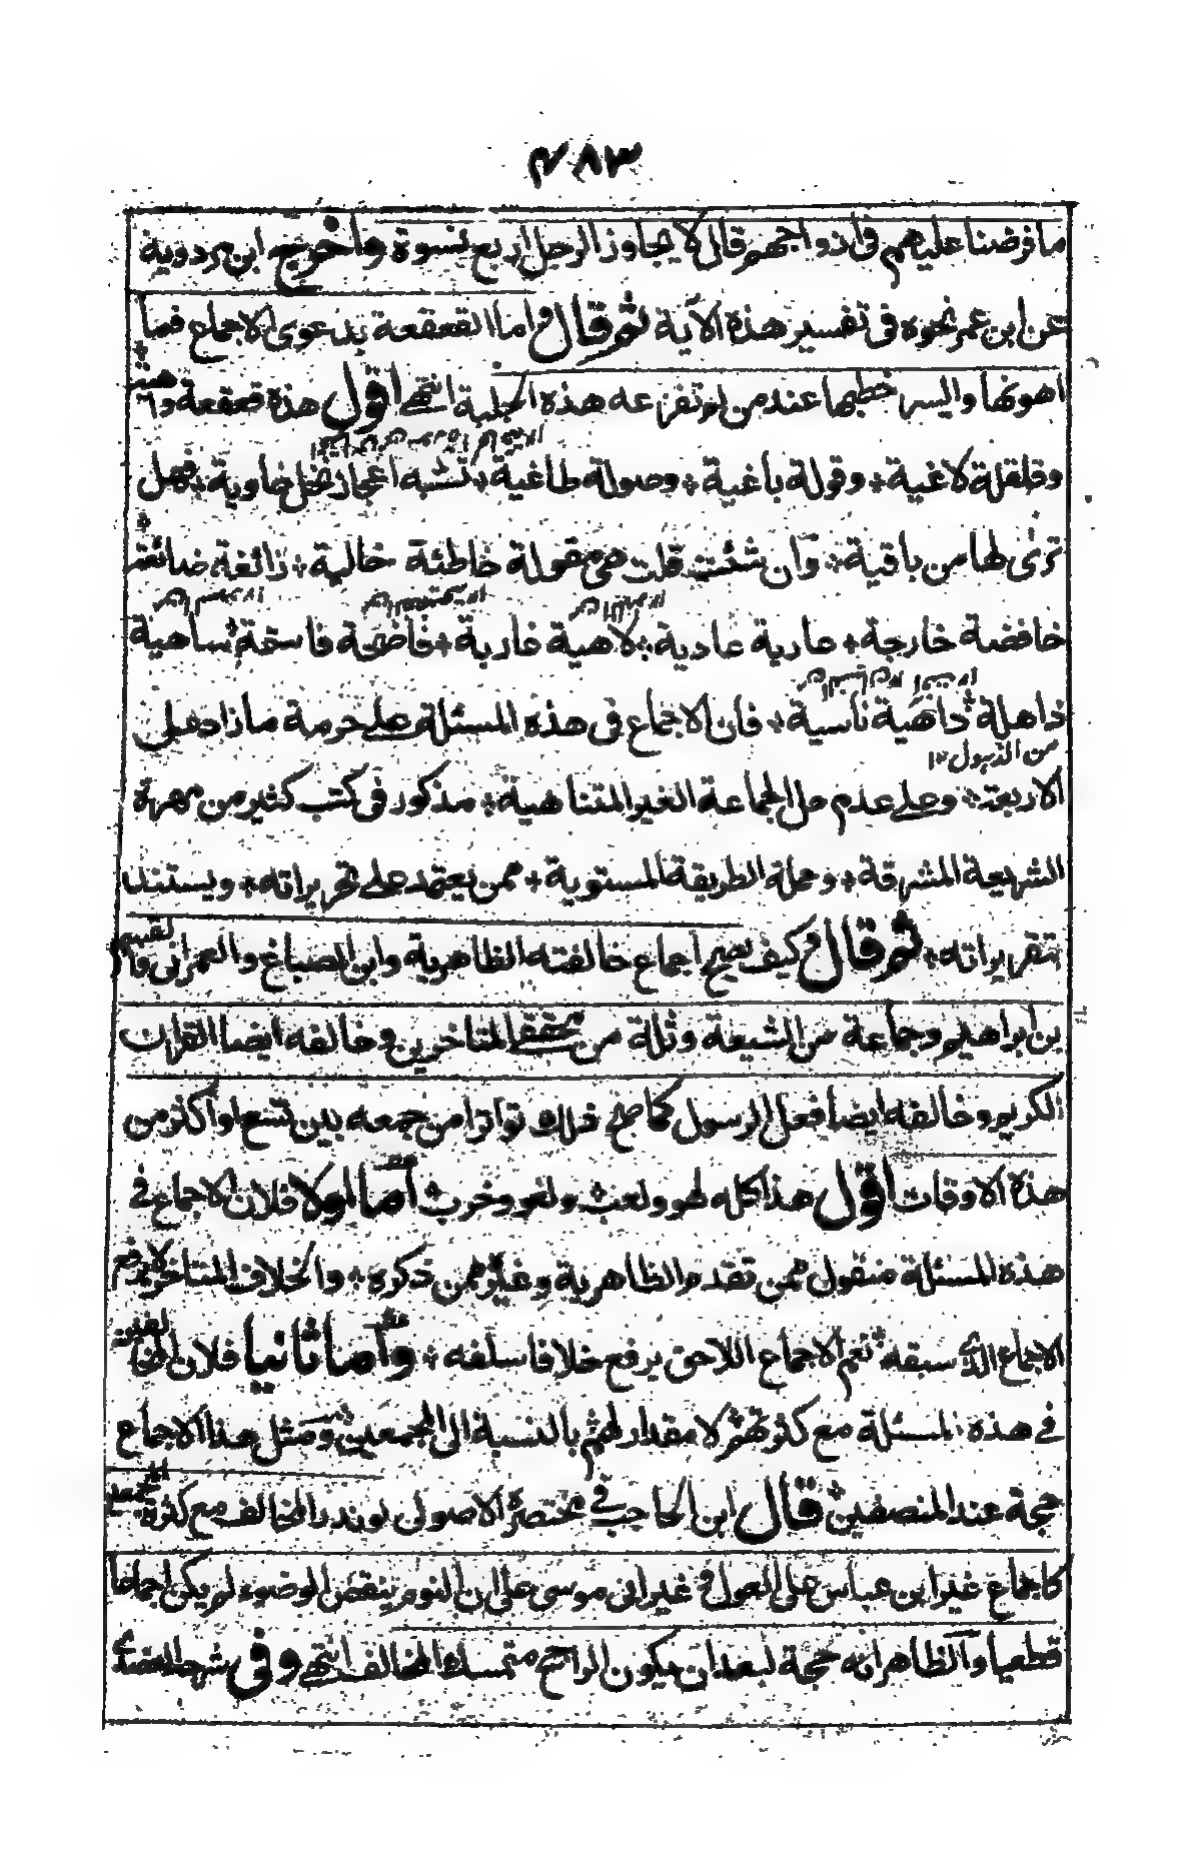 ٤٨٣
ما فرضنا عليهم فى ازواجهم قال لا يجاوز الرجل اربع نسوة واخرج ابن مردوية
عن ابن عمر نحوه فى تفسير هذه الاية ثم قال واما القعقعة بدعوى الاجماع فما
اهونها وايسر خطبها عند من لم تفزعه هذه الجلبة انتهى اقول هذه قعقعة واهية
وقلقلة لاغية * وقولة باغية * وصولة طاغية * تشبه اعجاز نخل خاوية * فهل
ترى لها من باقية * وان شئت قلت هى مقولة خاطئة خالية * زائغة ضائغة
خافضة خارجة * عارية عادية * لاهية فارية * فاضحة فاسخة * ساهية
ذاهلة داهية ناسية * فان الاجماع فى هذه المسئلة على حرمة ما زاد على
من الذهول ١٢
الاربعة * وعلى عدم حل الجماعة الغير المتناهية * مذكور فى كتب كثير من مهرة
الشريعة المشرقة * وحملة الطريقة المستوية * ممن يعتمد على تحريراته * ويستند
بتقريراته * ثم قال وكيف يصح اجماع خالفته الظاهرية وابن الصباغ والعمرانى والقسيم
بن ابراهيم وجماعة من الشيعة وثلة من محققى المتاخرين وخالفه ايضا القران
الكريم وخالفه ايضا فعل الرسول كما صح ذلك تواترا من جمعه بين تسع او اكثر من
هذه الاوقات اقول هذا كله لهو ولعث ولغو وخرث اما اولا فلان الاجماع فى
هذه المسئلة منقول ممن تقدم الظاهرية وغيرهم ممن ذكره * والخلاف المتاخر لا يرفع
الاجماع الذى سبقه نعم الاجماع اللاحق يرفع خلافا سلفه * واما ثانيا فلان المخالفين
فى هذه المسئلة مع كثرتهم لا مقدار لهم بالنسبة الى المجمعين ومثل هذا الاجماع
حجة عند المنصفين قال ابن الحاجب فى مختصر الاصول لو ندر المخالف مع كثرة المجمعين
كاجماع غير ابن عباس على العول وغير ابى موسى على ان النوم ينقض الوضوء لم يكن اجماعا
قطعيا والظاهر انه حجة لبعد ان يكون الراجح متمسك المخالف انتهى وفى شرحه للعضدى